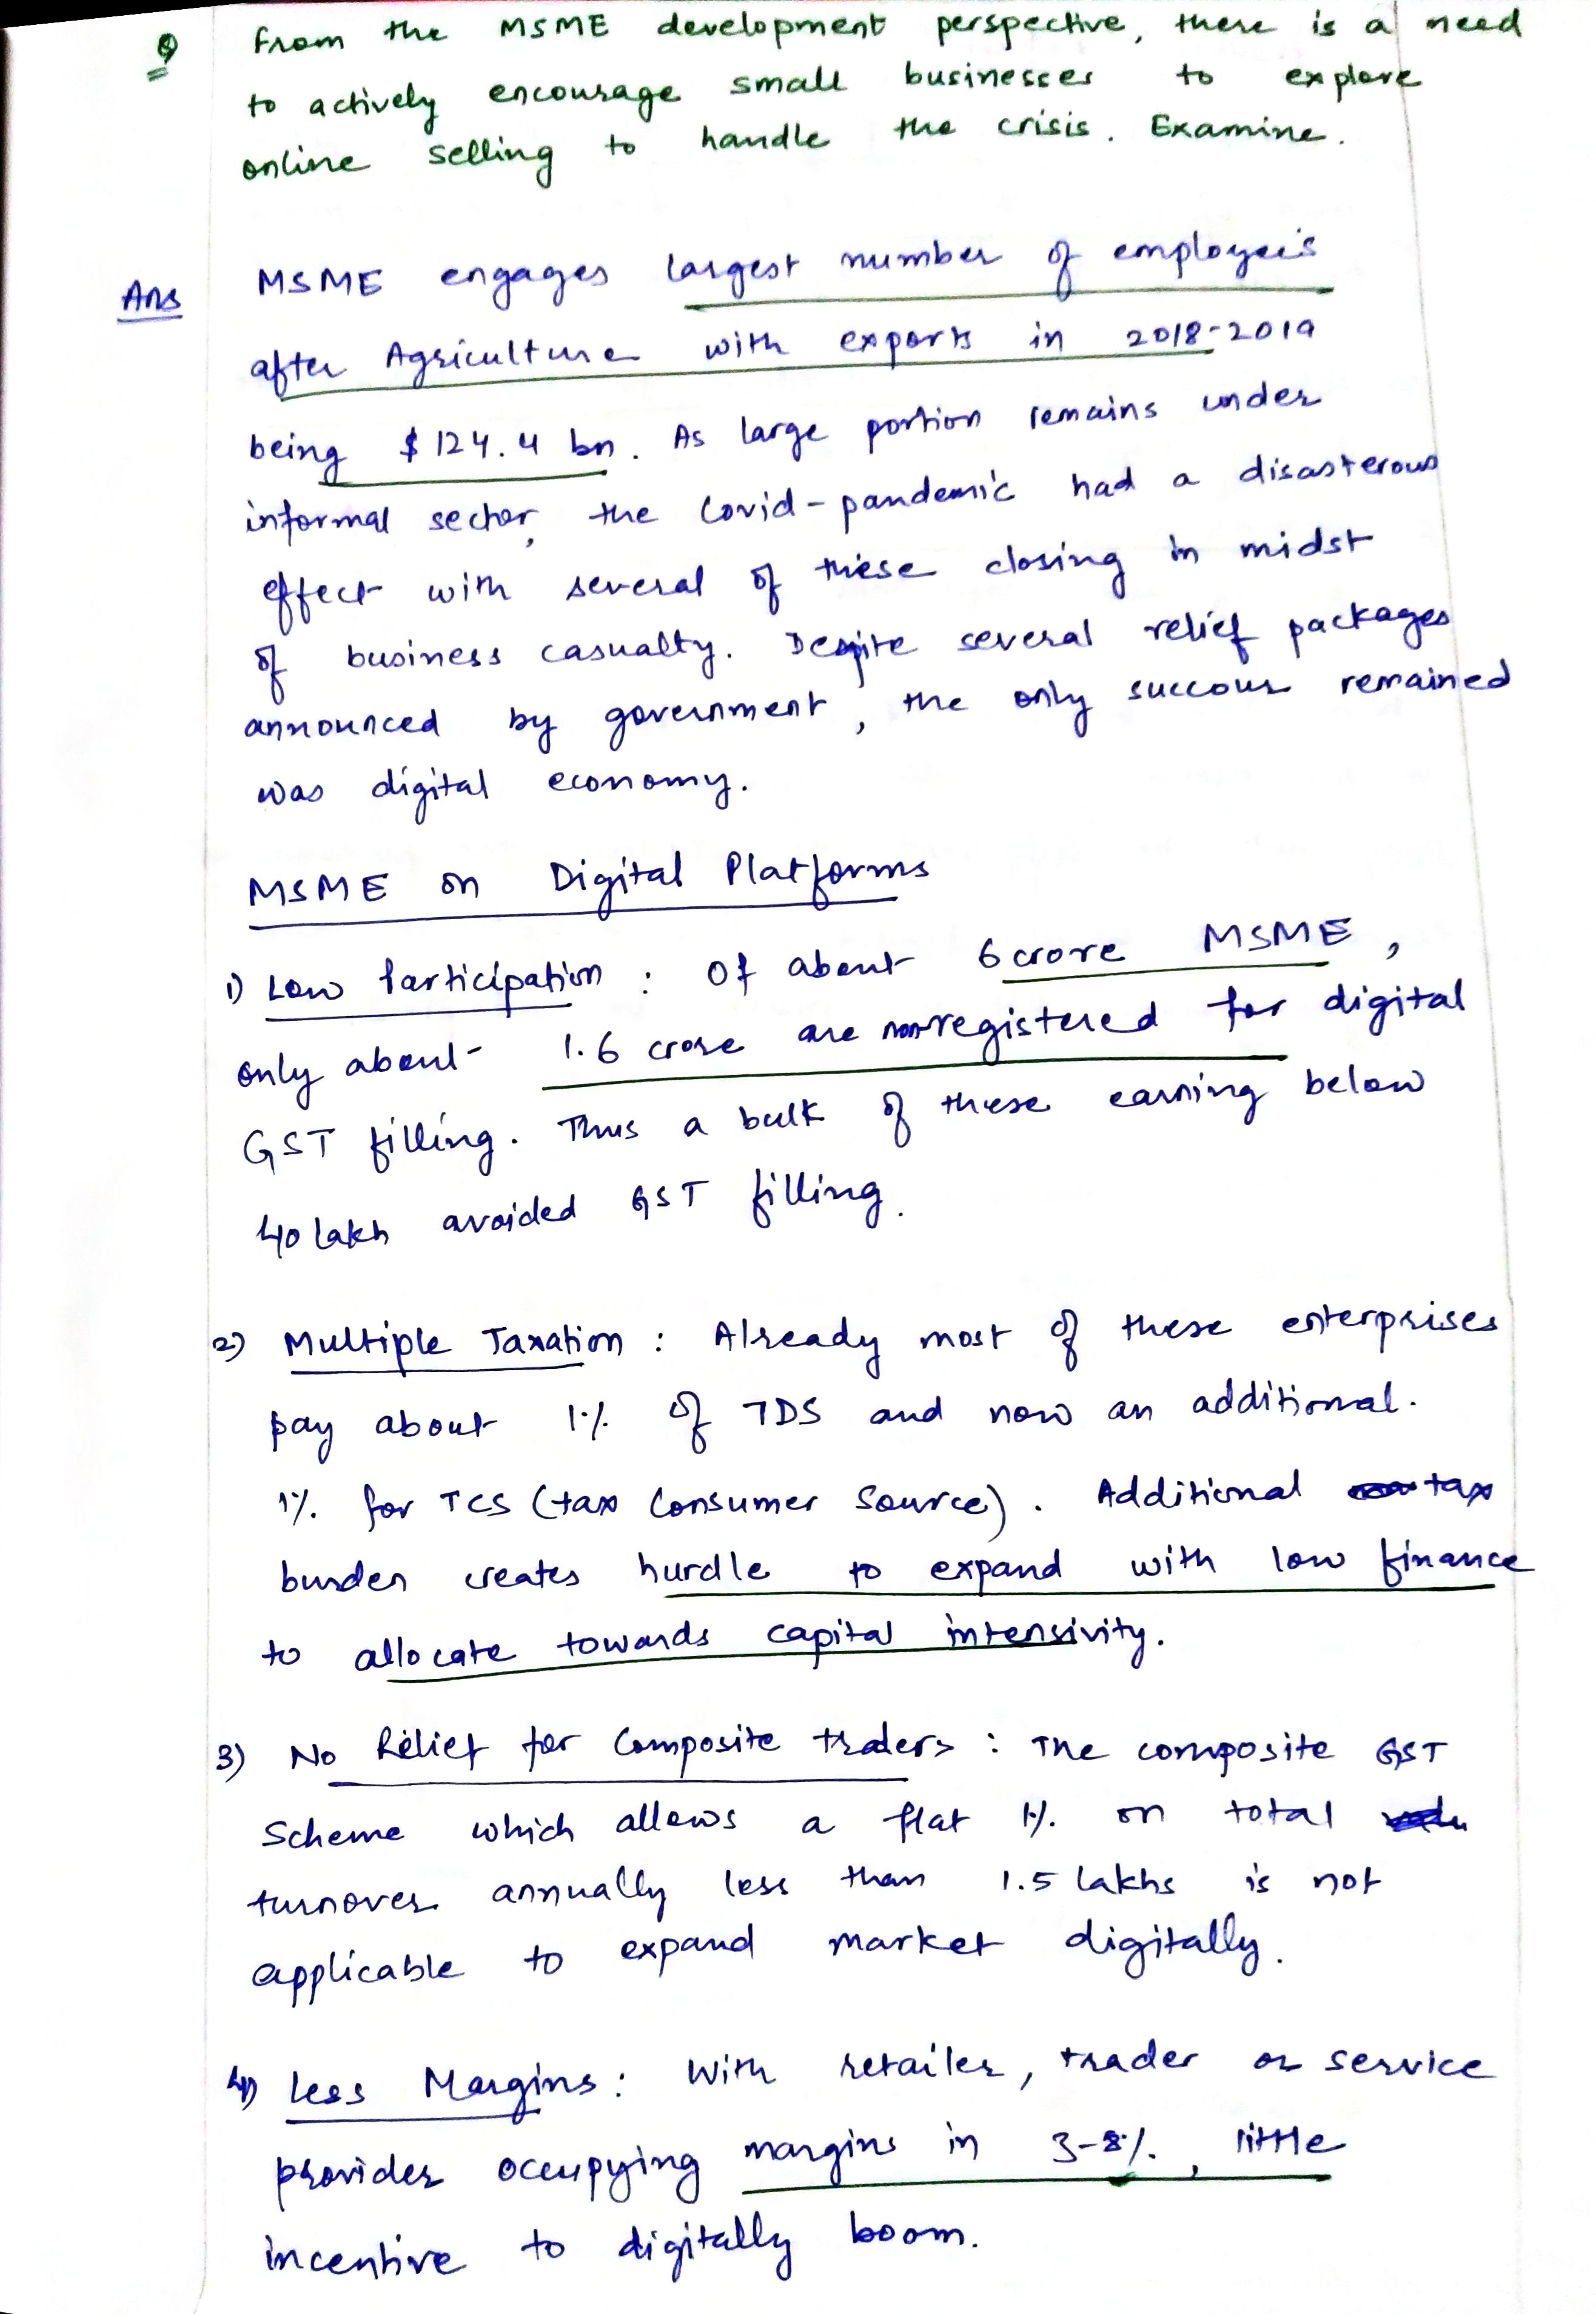 Q From the MSME development perspective, there is a need
to actively encourage small businesses to explore
online selling to handle the crisis. Examine.
Ans MSME engages largest number of employee's
after Agriculture with exports in 2018-2019
being $124.4 bn. As large portion remains under
informal sector, the Covid-pandemic had a disasterous
effect with several of these closing in midst
of business casualty. Despite several relief packages
announced by government, the only succour remained
was digital economy.
MSME on Digital Platforms
1) Low Participation : Of about 6 crore MSME,
only about 1.6 crore are registered for digital
GST filling. Thus a bulk of these earning below
40 lakh avoided GST filling.
2) Multiple Taxation : Already most of these enterprises
pay about 1% of TDS and now an additional.
1% for TCS (tax Consumer Source). Additional tax
burden creates hurdle to expand with low finance
to allocate towards capital intensivity.
3) No Relief for Composite traders : The composite GST
Scheme which allows a flat 1% on total
turnover annually less than 1.5 lakhs is not
applicable to expand market digitally.
4) Less Margins : With retailer, trader or service
provider occupying margins in 3-8%, little
incentive to digitally boom.